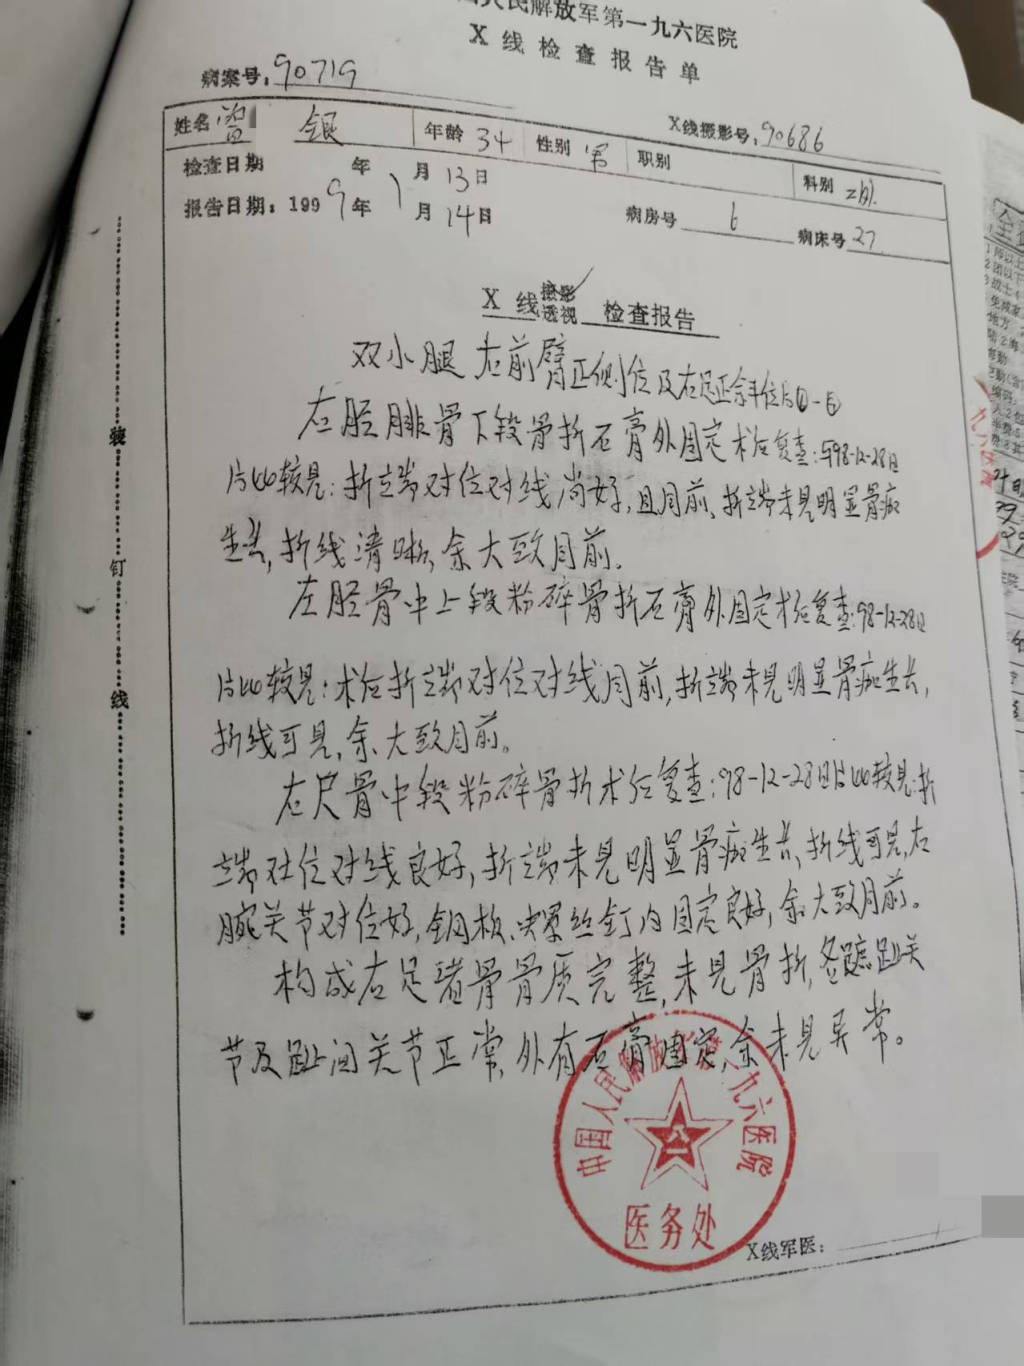 人民解放军第一九六医院
X线检查报告单
病案号:90719
X线摄影号:90686
姓名 银 年龄 34 性别 男 职别 科别
检查日期 年 月13日
报告日期:1999年1月14日 病房号 6 病床号27
X线摄影透视检查报告
双小腿右前臂正侧位及右足正斜位片
右胫腓骨下段骨折石膏外固定术后复查:与98-12-28日
片比较见:折端对位对线尚好,且同前、折端未见明显骨痂
生长,折线清晰,余大致同前。
左胫骨中上段粉碎骨折石膏外固定术后复查:98-12-28日
片比较见:术后折端对位对线同前,折端未见明显骨痂生长,
折线可见,余大致同前。
右尺骨中段粉碎骨折术后复查:98-12-28日片比较见:折
端对位对线良好,折端未见明显骨痂生长,折线可见,右
腕关节对位好,钢板、螺丝钉内固定良好,余大致同前。
构成右足诸骨骨质完整,未见骨折,各跖趾关
节及趾间关节正常,外有石膏固定,余未见异常。
中国人民解放军第一九六医院
医务处
X线军医:
装
钉
线